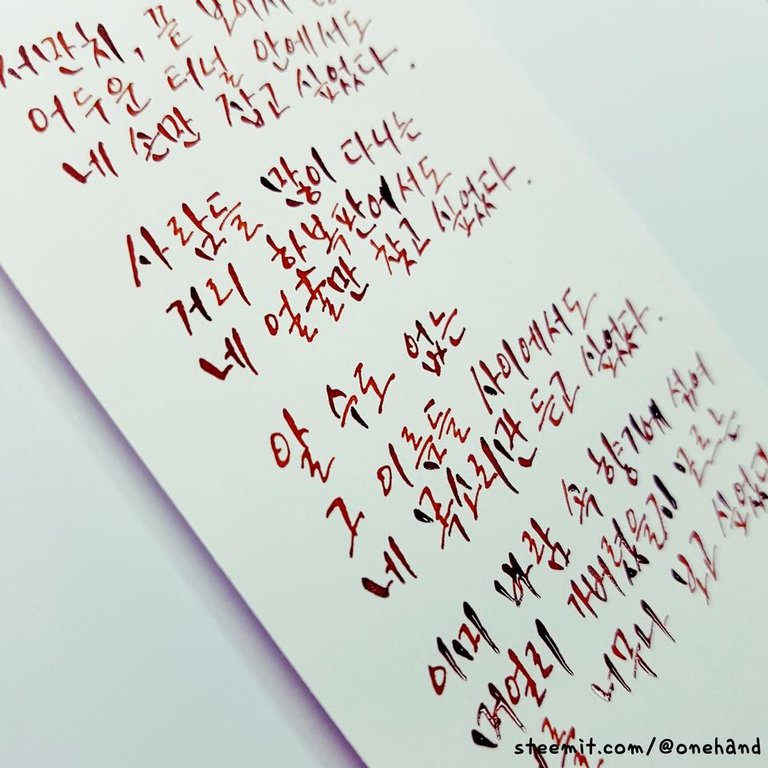 저만치, 끝 보이지
어두운 터널 안에서도
네 손만 잡고 싶었다.
사람들 많이 다니는
거리 한복판에서도
네 얼굴만 찾고 싶었다.
알 수도 없는
그 이름들 사이에서도
네 목소리만 듣고 싶었다.
이미 바람 속 향기에 섞여
저 멀리 가버렸을지 모르는
너무나 있고 싶었다
steemit.com/@onehand